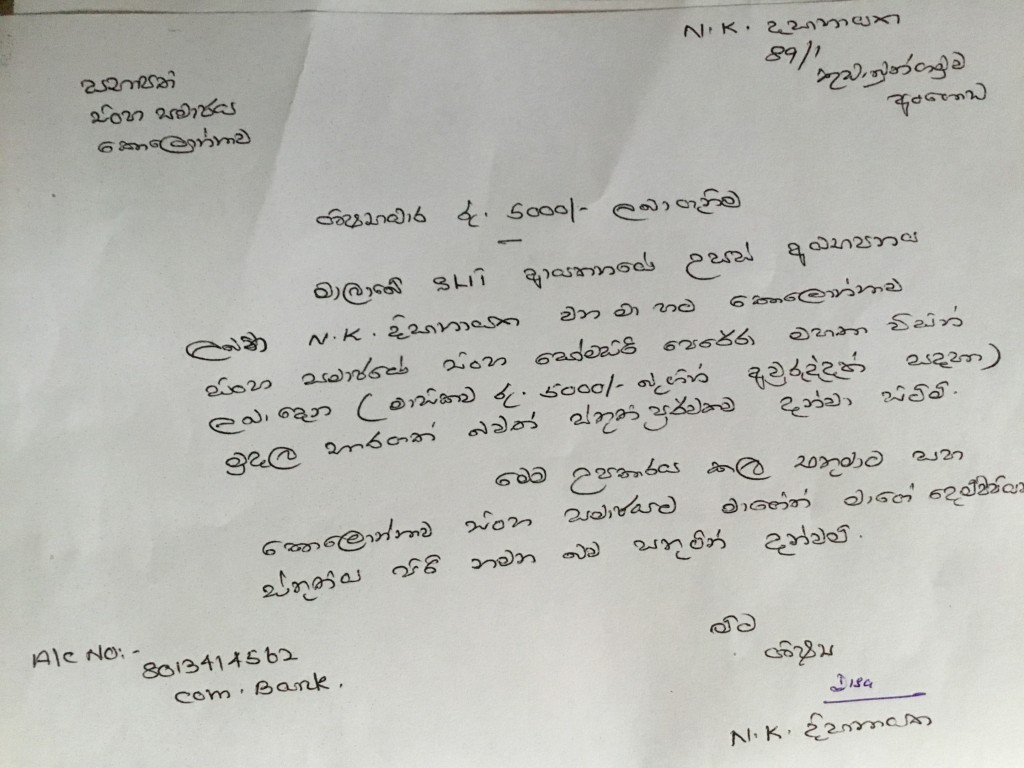 N.K. දිසානායක
89/1
අංගොඩ
සභාපති
සිංහ සමාජය
කොලොන්නාව
ශිෂ්‍යාධාර රු. 5000/- ලබාගැනීම
මාලාබේ SLIT ආයතනයේ උසස් අධ්‍යාපනය
ලබන N.K. දිසානායක වන මා හට කොලොන්නාව
සිංහ සමාජයේ සිංහ සෝමසිරි පෙරේරා මහතා විසින්
ලබා දෙන (මාසිකව රු. 5000/- බැගින් අවුරුද්දක් සඳහා)
මුදල භාරගත් බවත් ස්තුති පූර්වකව දන්වා සිටිමි.
මෙම උපකාරය කල එතුමාට සහ
කොලොන්නාව සිංහ සමාජයට මාගේත් මාගේ දෙමව්පියන්
ස්තුතිය පිරි නමන බව සතුටින් දන්වමි.
මීට
ශිෂ්‍ය
Disa
N.K. දිසානායක
A/C NO:-
8013414562
Com. Bank.